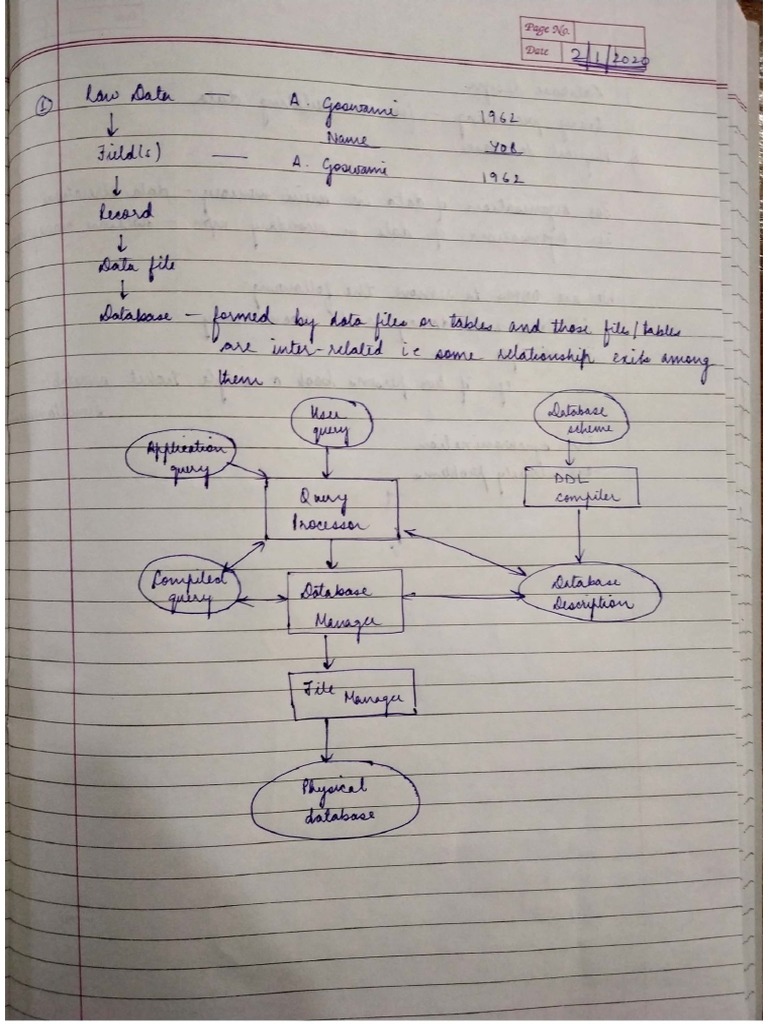 Page No.
Date 2/1/2020
① Raw Data — A. Goswami 1962
↓ Name YOB
Field(s) — A. Goswami 1962
↓
Record
↓
Data file
↓
Database — formed by data files or tables and those file/tables
are inter-related ie some relationship exits among
them
User
query
Database
scheme
Application
query
DDL
compiler
Query
Processor
Compiled
query
Database
Manager
Database
Description
File Manager
Physical
database